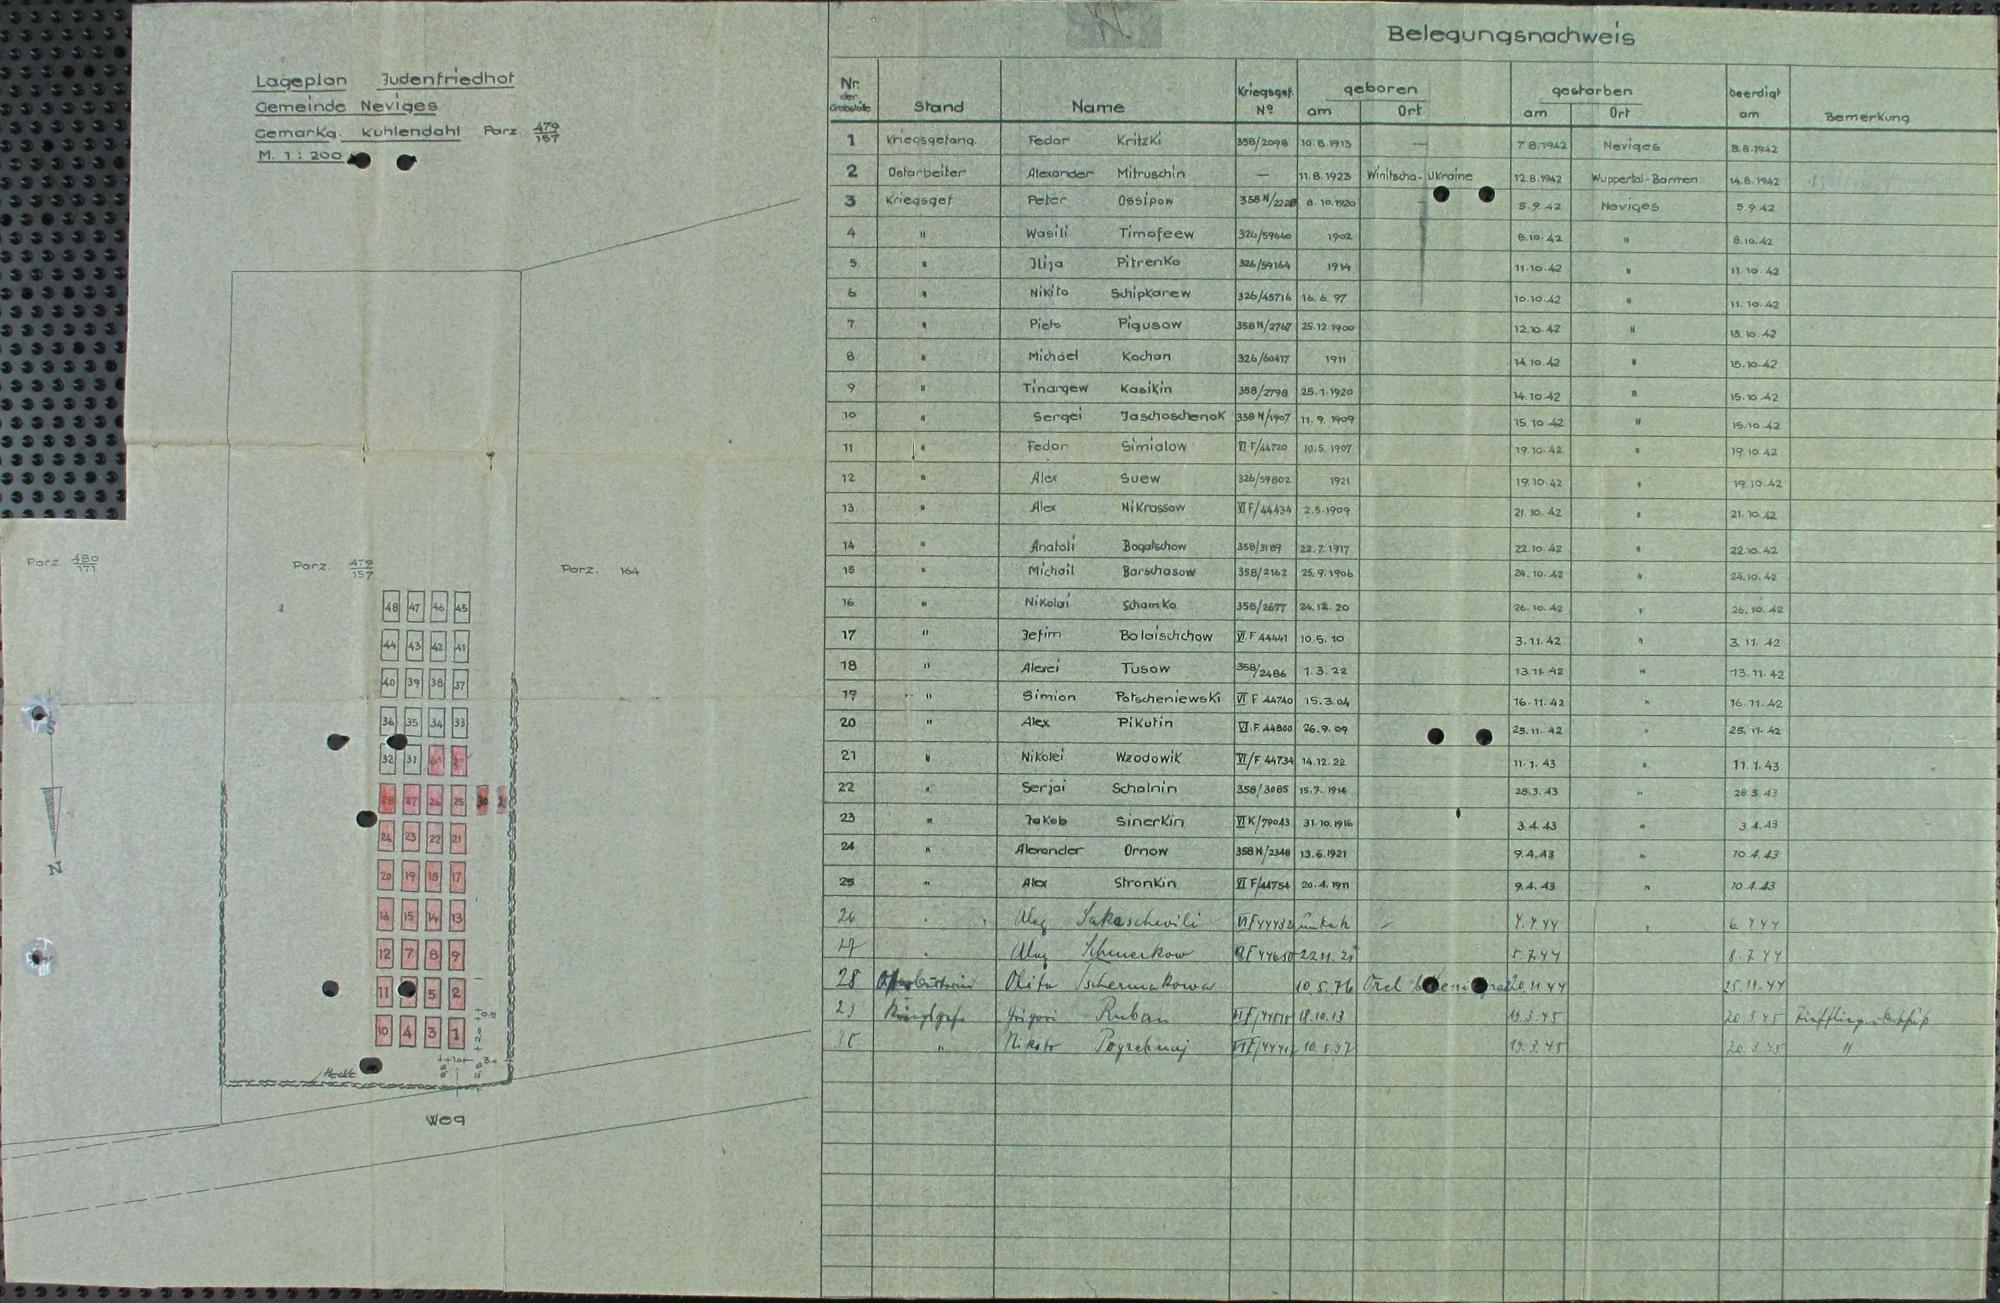 Lageplan Judenfriedhof
Gemeinde Neviges
Gemarkg. Kuhlendahl Parz. 479/157
M. 1:200
Parz. 480/171
Parz. 479/157
Parz. 164
48 47 46 45
44 43 42 41
40 39 38 37
36 35 34 33
32 31
28 27 26 25 30
24 23 22 21
20 19 18 17
16 15 14 13
12 7 8 9
11 5 2
10 4 3 1
S
N
Hecke
Weg
Belegungsnachweis
Nr. der Grabstätte Stand Name Kriegsgef. No geboren am Ort gestorben am Ort beerdigt am Bemerkung
1 Kriegsgefang. Fedor Kritzki 358/2098 10.8.1913 — 7.8.1942 Neviges 8.8.1942
2 Ostarbeiter Alexander Mitruschin — 11.8.1923 Winitscha-Ukraine 12.8.1942 Wuppertal-Barmen 14.8.1942
3 Kriegsgef. Peter Ossipow 358 N/2228 8.10.1920 5.9.42 Neviges 5.9.42
4 " Wasili Timofeew 326/59640 1902 8.10.42 " 8.10.42
5 " Ilija Pitrenko 326/59164 1914 11.10.42 " 11.10.42
6 " Nikito Schipkarew 326/45716 16.6.97 10.10.42 " 11.10.42
7 " Pioto Pigusow 358 N/2767 25.12.1900 12.10.42 " 13.10.42
8 " Michael Kochan 326/60417 1911 14.10.42 " 15.10.42
9 " Tinargew Kasikin 358/2798 25.1.1920 14.10.42 " 15.10.42
10 " Sergei Jaschoschenok 358 N/1907 11.9.1909 15.10.42 " 15.10.42
11 " Fedor Simialow VI F/44720 10.5.1907 19.10.42 " 19.10.42
12 " Alex Suew 326/59802 1921 19.10.42 " 19.10.42
13 " Alex Nikrassow VI F/44434 2.5.1909 21.10.42 " 21.10.42
14 " Anatoli Bogatschow 358/3189 22.7.1917 22.10.42 " 22.10.42
15 " Michail Barschasow 358/2162 25.9.1906 24.10.42 " 24.10.42
16 " Nikolai Schamko 358/2677 24.12.20 26.10.42 " 26.10.42
17 " Jefim Bolaischchow VI.F 44441 10.5.10 3.11.42 " 3.11.42
18 " Alexei Tusow 358/2486 1.3.22 13.11.42 " 13.11.42
19 " Simion Potscheniewski VI F 44740 15.3.04 16.11.42 " 16.11.42
20 " Alex Pikutin VI.F.44800 26.9.09 25.11.42 " 25.11.42
21 " Nikolei Wzodowik VI/F 44734 14.12.22 11.1.43 " 11.1.43
22 " Serjai Schalnin 358/3085 15.7.1914 28.3.43 " 28.3.43
23 " Jakob Sinerkin VI K/79043 31.10.1916 3.4.43 " 3.4.43
24 " Alexander Ornow 358 N/2348 13.6.1921 9.4.43 " 10.4.43
25 " Alex Stronkin VI F/44754 20.4.1911 9.4.43 " 10.4.43
26 " VI F 44432 4.7.44 " 6.7.44
27 " Schmerkow VI F 44650 22.11.21 5.7.44 8.7.44
28 Olita Tschermakowa 10.5.76 Orel 20.11.44 25.11.44
29 Kriegsgef. Grigori Ruban 18.10.13 19.3.45 20.3.45
30 " Nikita Pogrebnoj 10.5.97 19.3.45 20.3.45 "